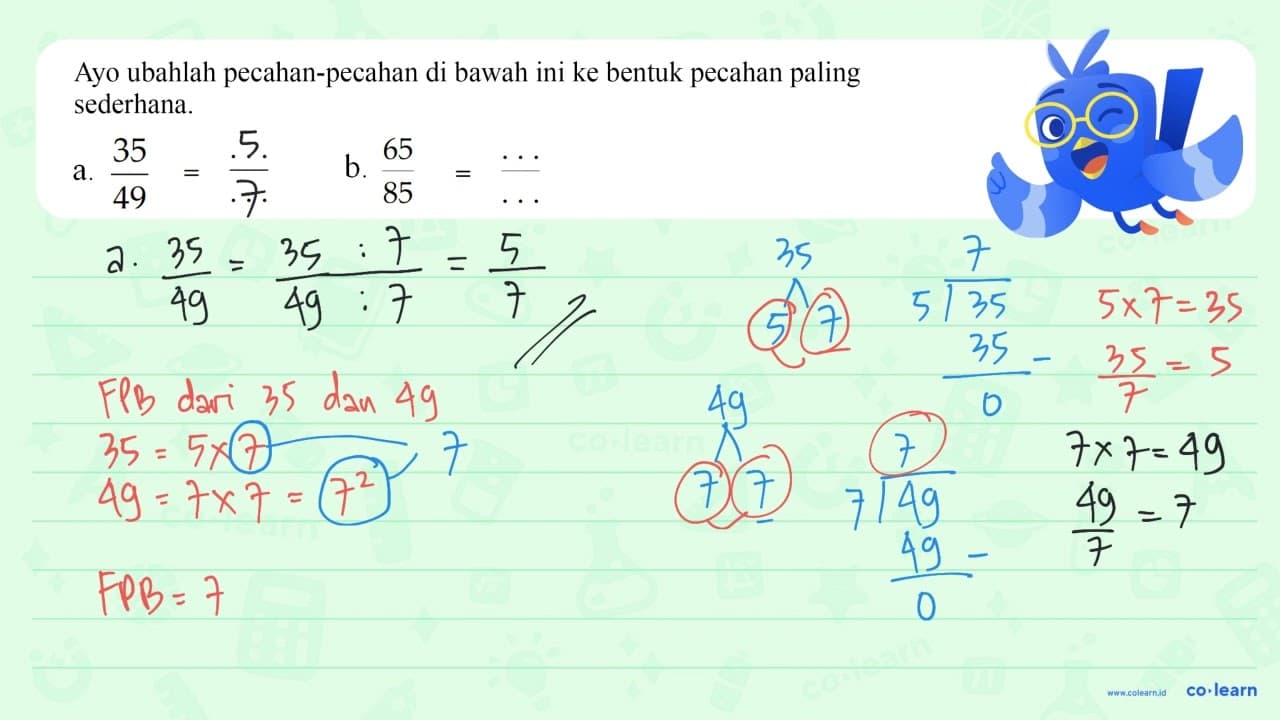 Ayo ubahlah pecahan-pecahan di bawah ini ke bentuk pecahan paling
sederhana.
a. 35/49 = .5./.7. b. 65/85 = .../...
a. 35/49 = 35 : 7/49 : 7 = 5/7
FPB dari 35 dan 49
35 = 5 x 7
49 = 7 x 7 = 7² 7
FPB = 7
35
5 7
49
7 7
7
5 35
35 -
0
7
7 49
49 -
0
5 x 7 = 35
35/7 = 5
7 x 7 = 49
49/7 = 7
co·learn
co·learn
co·learn
co·learn
www.colearn.id co·learn